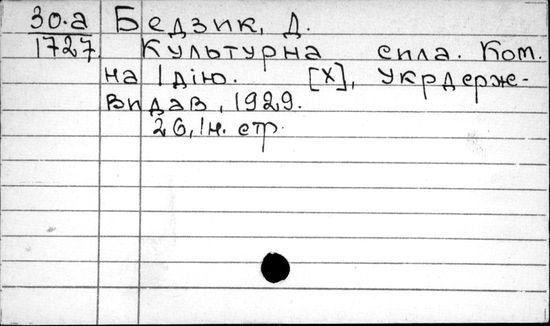 30.а Бедзик, Д.
1727 Культурна сила. Ком.
на 1 дію. [Х], Укрдерж-
видав, 1929.
26, 1н. стр.